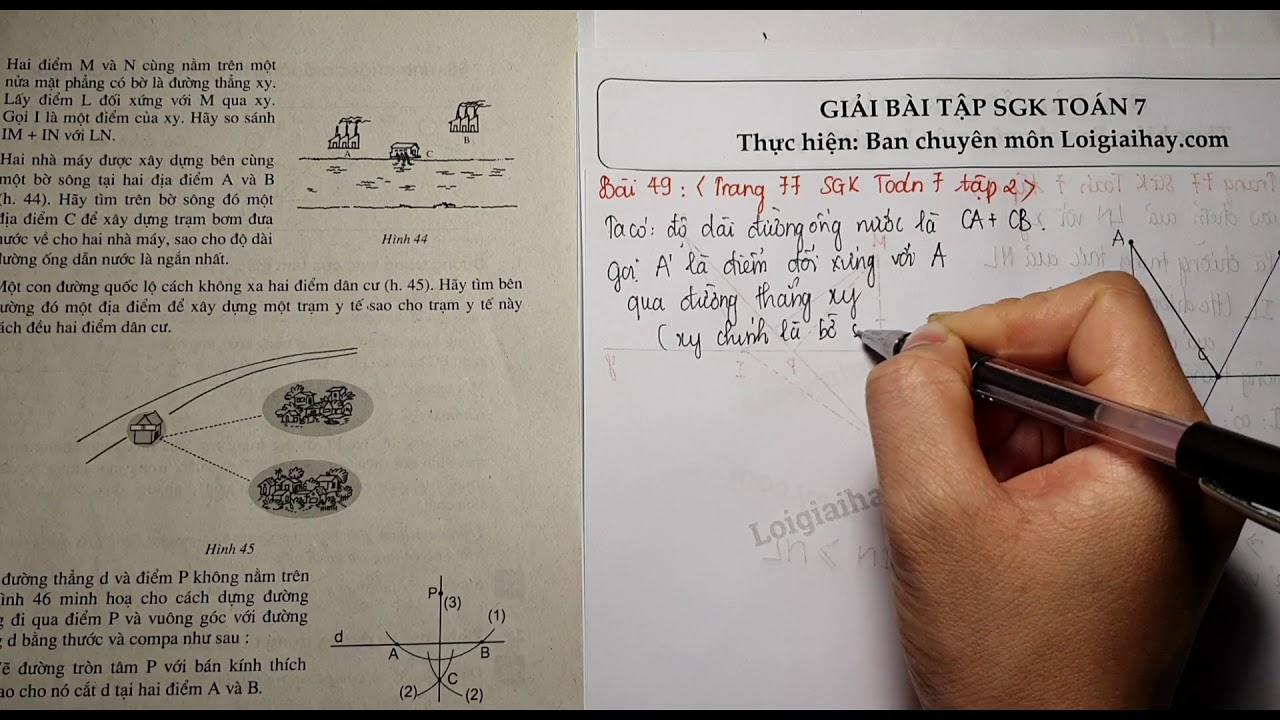 Hai điểm M và N cùng nằm trên một
nửa mặt phẳng có bờ là đường thẳng xy.
Lấy điểm L đối xứng với M qua xy.
Gọi I là một điểm của xy. Hãy so sánh
IM + IN với LN.
Hai nhà máy được xây dựng bên cùng
một bờ sông tại hai địa điểm A và B
(h. 44). Hãy tìm trên bờ sông đó một
địa điểm C để xây dựng trạm bơm đưa
nước về cho hai nhà máy, sao cho độ dài
đường ống dẫn nước là ngắn nhất.
A
C
B
Hình 44
Một con đường quốc lộ cách không xa hai điểm dân cư (h. 45). Hãy tìm bên
đường đó một địa điểm để xây dựng một trạm y tế sao cho trạm y tế này
cách đều hai điểm dân cư.
Hình 45
đường thẳng d và điểm P không nằm trên
Hình 46 minh hoạ cho cách dựng đường
đi qua điểm P và vuông góc với đường
d bằng thước và compa như sau :
Vẽ đường tròn tâm P với bán kính thích
sao cho nó cắt d tại hai điểm A và B.
P
(3)
(1)
d
A
B
C
(2)
(2)
GIẢI BÀI TẬP SGK TOÁN 7
Thực hiện: Ban chuyên môn Loigiaihay.com
Bài 49 : (Trang 77 SGK Toán 7 tập 2)
Ta có: độ dài đường ống nước là CA + CB.
Gọi A' là điểm đối xứng với A
qua đường thẳng xy
(xy chính là bờ s
A
C
Loigiaihay